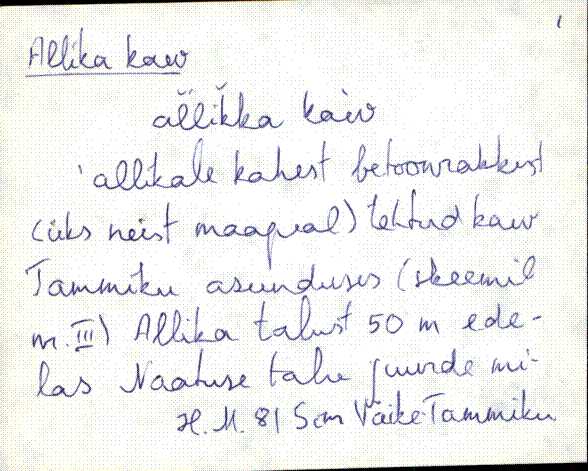 1
Allika kaev
al̆lĭkka kàev
'allikale kahest betoonrakkest
(üks neist maapeal) tehtud kaev
Tammiku asunduses (skeemil
nr. III) Allika talust 50 m ede-
las Naatuse talu juurde mi-
H. M. 81 Sim Väike-Tammiku